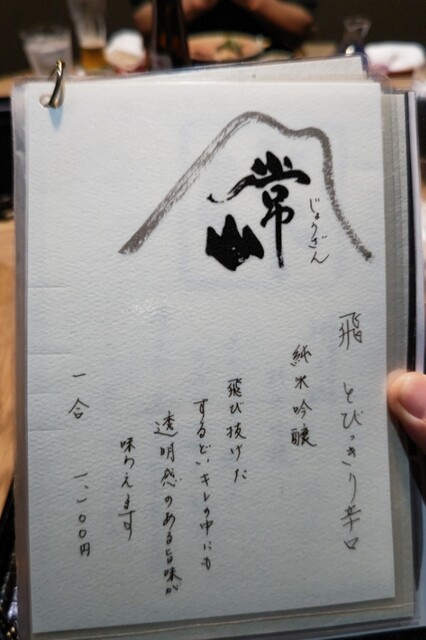 常山
じょうざん
飛 とびっきり辛口
純米吟醸
飛び抜けた
するどいキレの中にも
透明感のある旨味が
味わえます
一合 一、二〇〇円